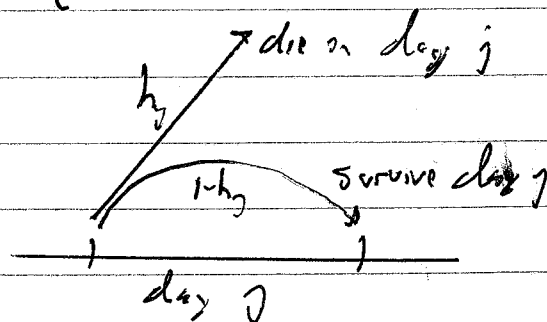 die on day j
hj
1-hj
survive day j
day j